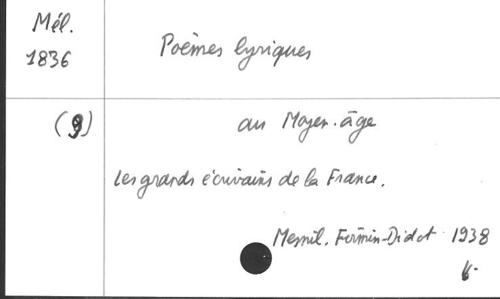 Mél.
1836
Poèmes lyriques
(9)
au Moyen-âge
Les grands écrivains de la France.
Mesnil. Firmin-Didot 1938